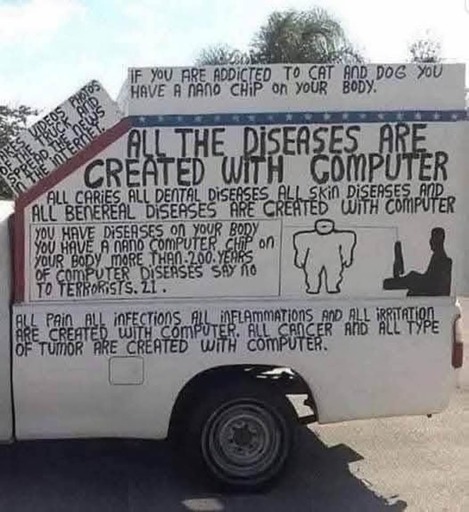 VIDEOS PHOTOS
OF THE TRUCK AND
SPREAD THE NEWS
IN THE INTERNET.
IF YOU ARE ADDICTED TO CAT AND DOG YOU
HAVE A NANO CHIP ON YOUR BODY.
ALL THE DISEASES ARE
CREATED WITH COMPUTER
ALL CARIES ALL DENTAL DISEASES ALL SKIN DISEASES AND
ALL BENEREAL DISEASES ARE CREATED WITH COMPUTER
YOU HAVE DISEASES ON YOUR BODY
YOU HAVE A NANO COMPUTER CHIP ON
YOUR BODY MORE THAN.200.YEARS
OF COMPUTER DISEASES SAY NO
TO TERRORISTS.21.
ALL PAIN ALL INFECTIONS ALL INFLAMMATIONS AND ALL IRRITATION
ARE CREATED WITH COMPUTER. ALL CANCER AND ALL TYPE
OF TUMOR ARE CREATED WITH COMPUTER.